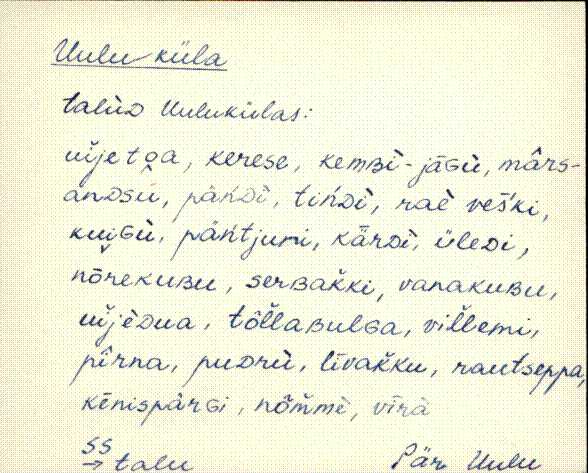 Uulu küla
talùD Uulukülas:
ui̬jetoa, kerese, kemBì-jāGù, mârs-
andsù, pǟńDì, tińDì, raè veški,
kui̬Gù, pǟńtjumi, kǟrDì, üleDi,
nōrekuBu, serBak̆ki, vanakuBu,
ui̬jèDua, tōl̆laBulGa, vil̆lemi,
pîrna, puDrù, līvak̆ku, rautseppa,
kēnispârGi, nōm̆mè, vīrà
SS
→ talu Pär Uulu